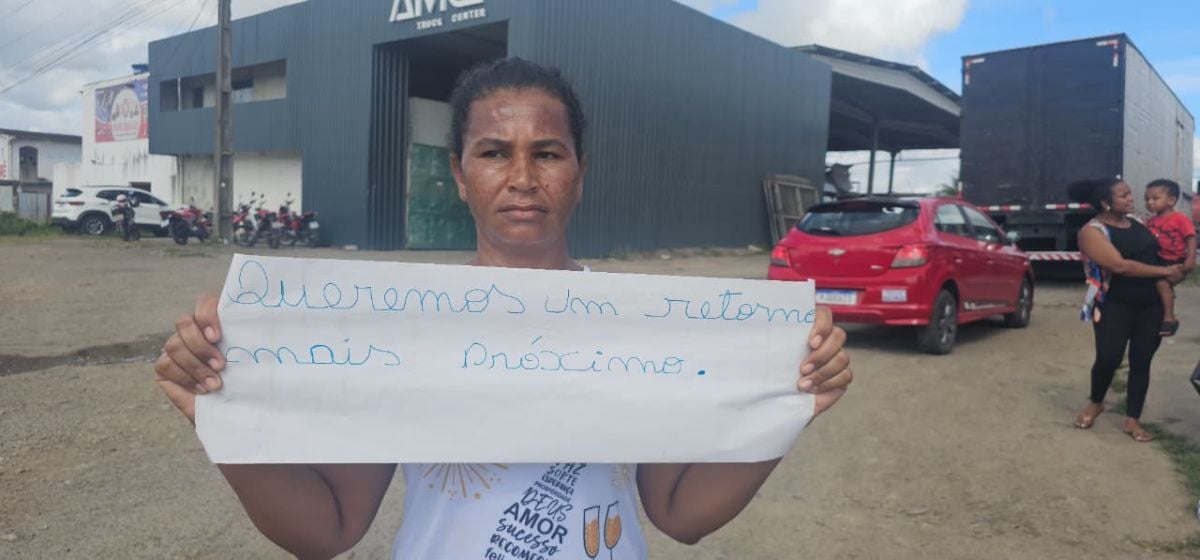 TRUCK CENTER
Queremos um retorno
mais próximo.
SORTE
ESPERANÇA
PROSPERIDADE
DEUS
AMOR
SUCESSO
RECOMEÇ
feli